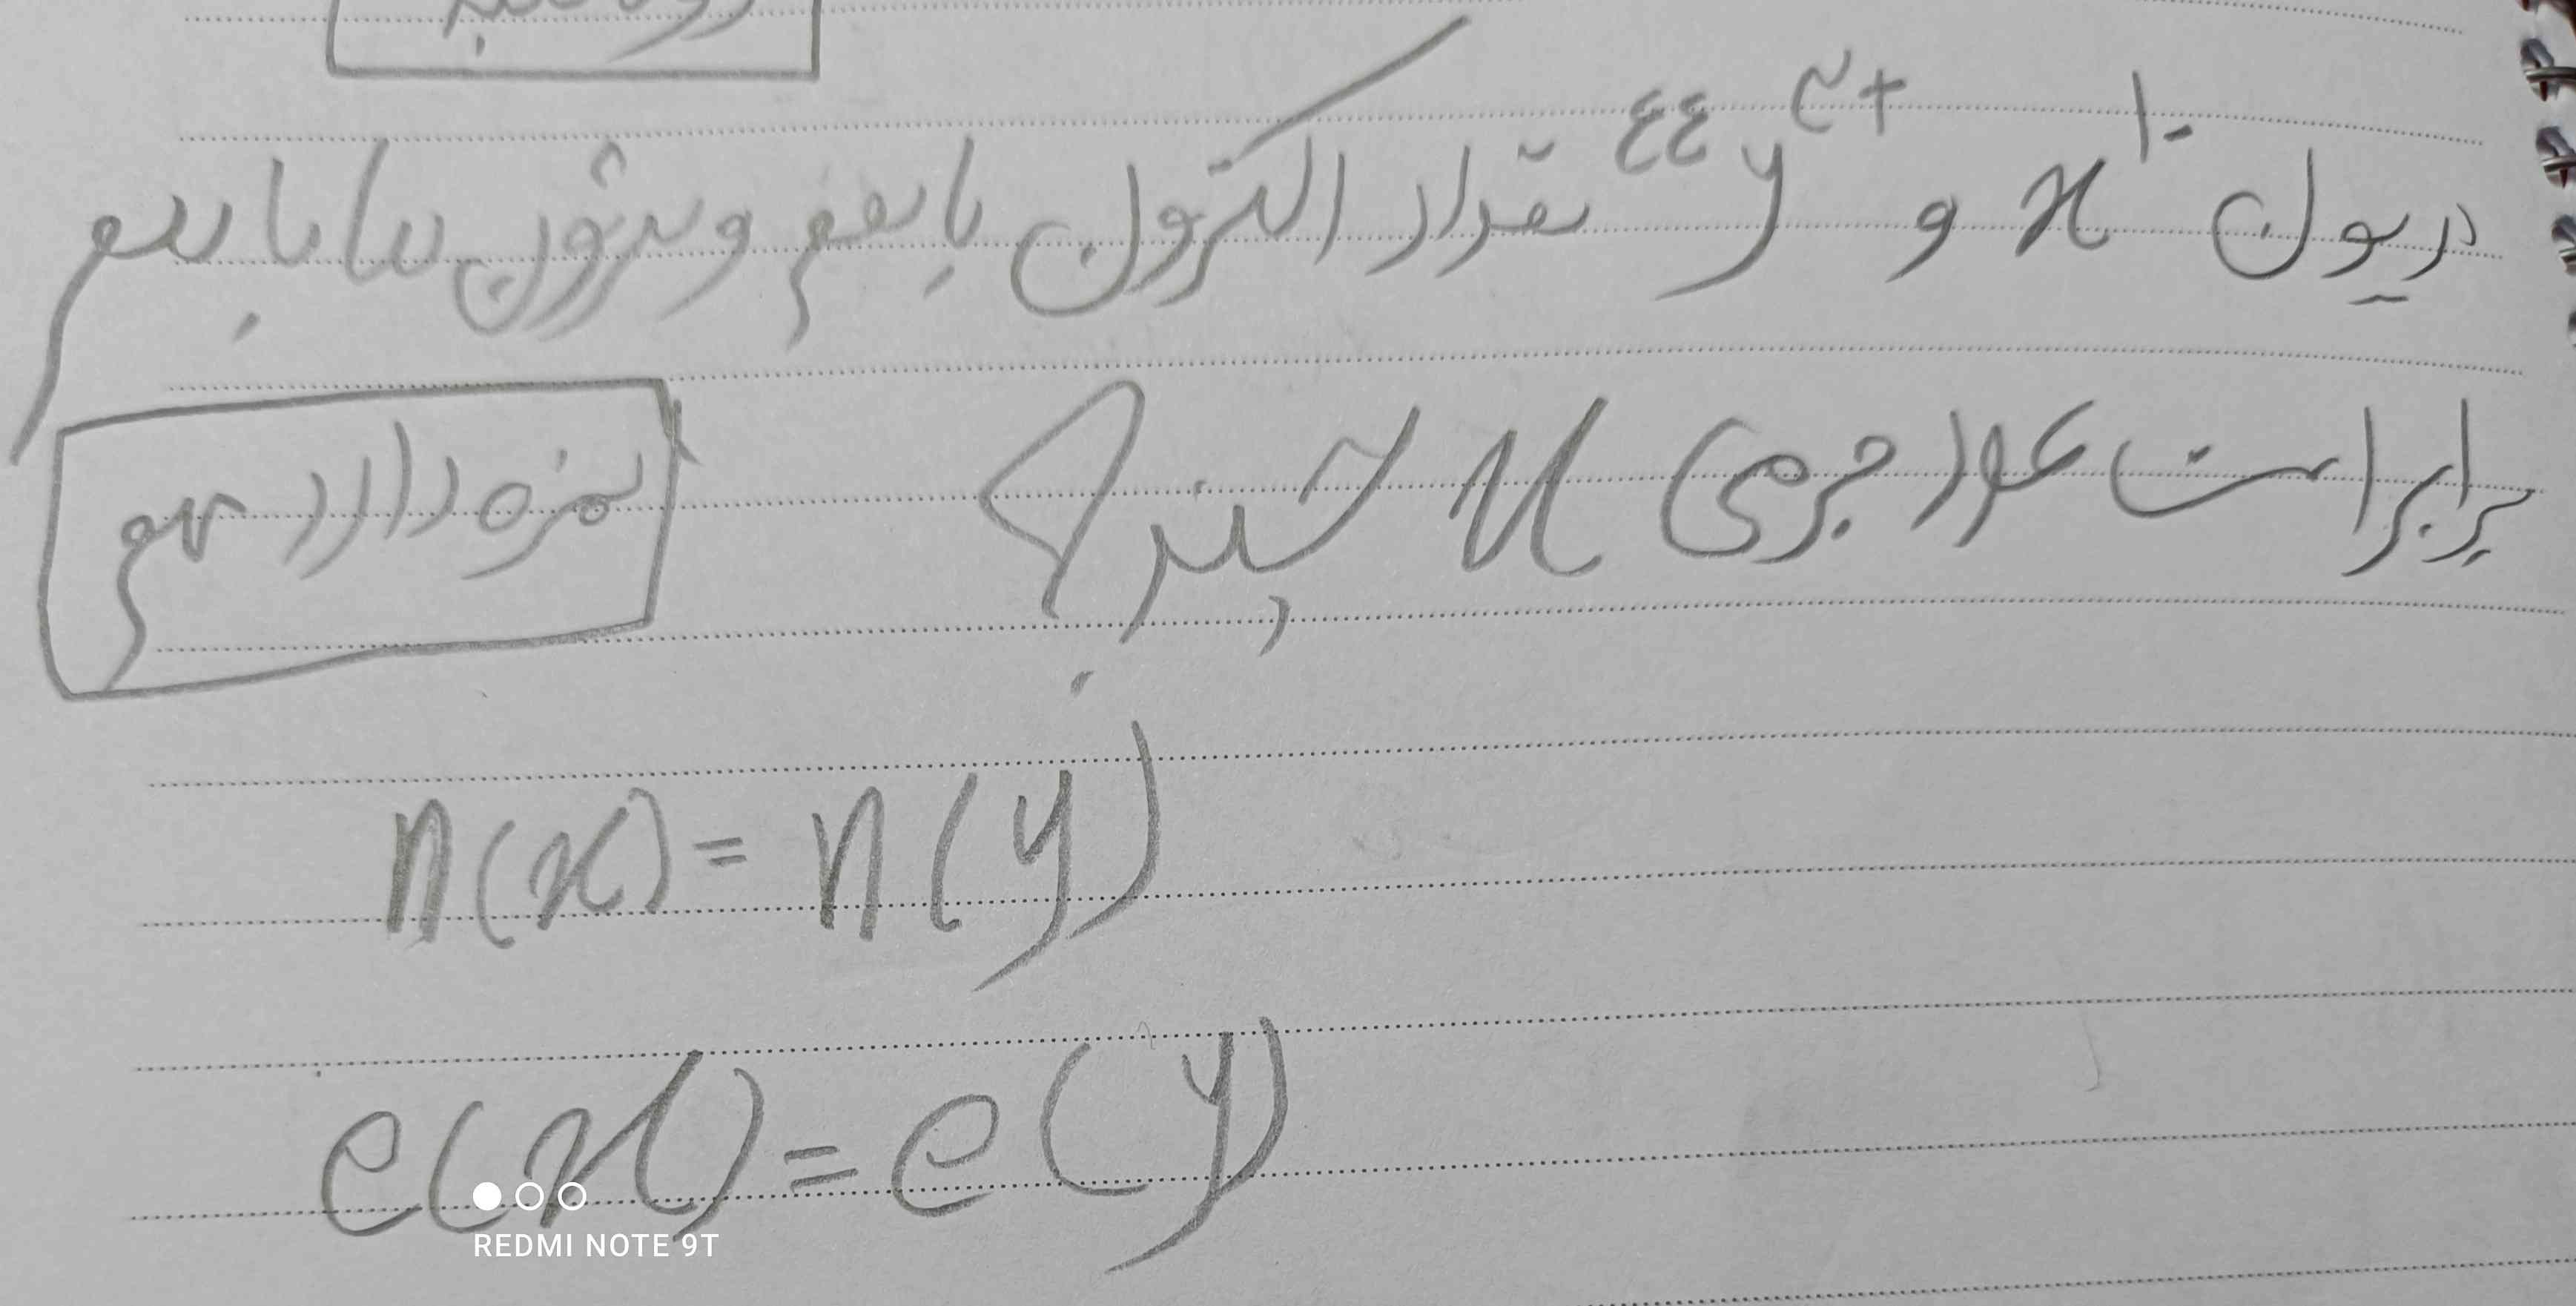 در یون x¹⁻ و ⁴⁴y³⁺ تعداد الکترون با هم و نوترون ها با هم
برابر است عدد جرمی x چیند؟
نمره دارد
n(x) = n(y)
e(x) = e(y)
REDMI NOTE 9T